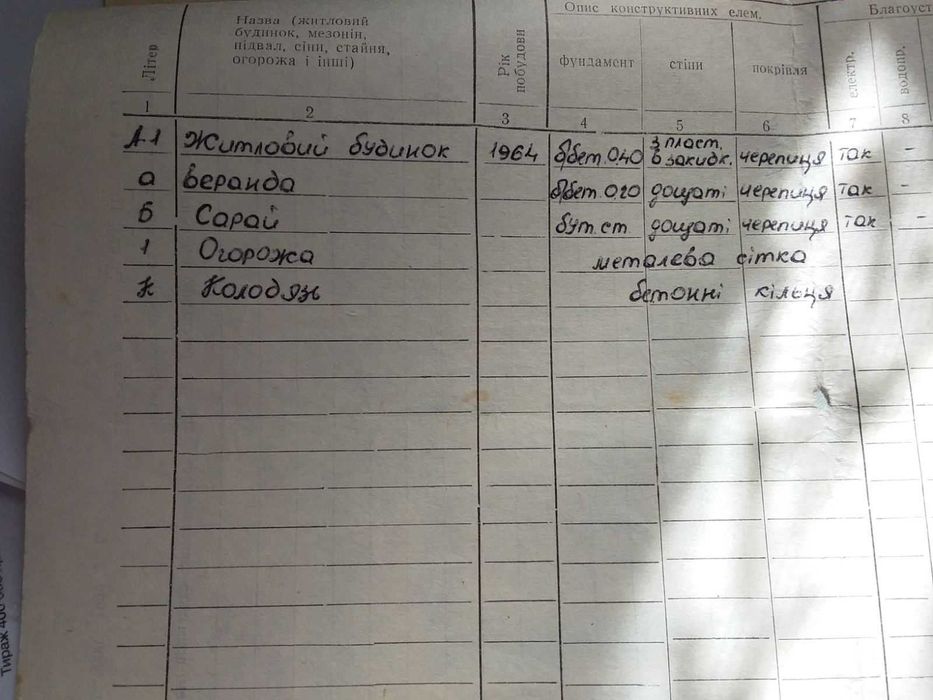 Опис конструктивних елем.
Благоуст
Літер
Назва (житловий
будинок, мезонін,
підвал, сіни, стайня,
огорожа і інші)
Рік
побудови
фундамент
стіни
покрівля
електр.
водопр.
1 2 3 4 5 6 7 8
А-1 Житловий будинок 1964 б/бет. 0.40 з пласт. в закидк. черепиця так -
а веранда б/бет. 0.20 дощаті черепиця так -
Б Сарай бут. ст дощаті черепиця так -
1 Огорожа металева сітка
К Колодязь бетонні кільця
Тираж 400